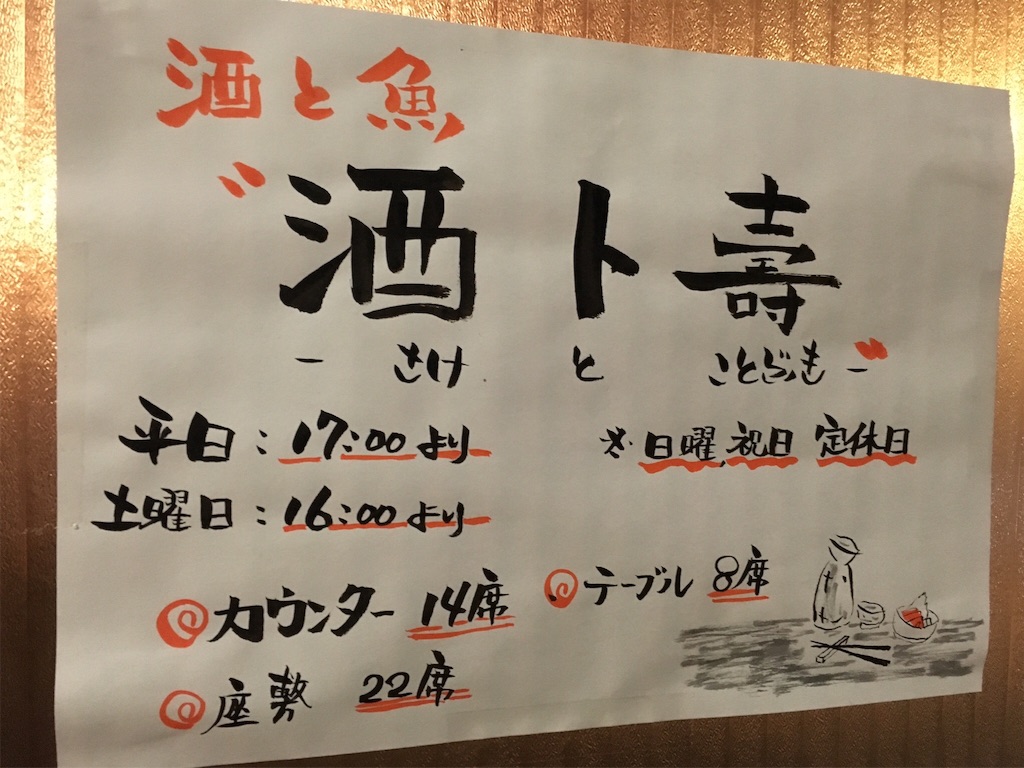 酒と魚
〝酒ト壽
－ さけ と ことぶき －〟
平日：17:00より
土曜日：16:00より
※日曜、祝日 定休日
カウンター 14席
テーブル 8席
座敷 22席